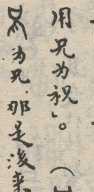 用兄为祝”。（
为兄，那是后来